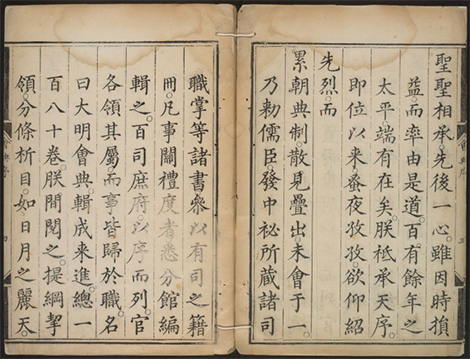 聖聖相承先後一心雖因時損
益而率由是道百有餘年之
太平端有在矣朕祗承天序
即位以來蚤夜孜孜欲仰紹
先烈而
累朝典制散見疊出未會于一
乃勅儒臣發中祕所藏諸司
職掌等諸書參以有司之籍
冊凡事關禮度者悉分館編
輯之百司庶府以序而列官
各領其屬而事皆歸於職名
曰大明會典輯成來進總一
百八十卷朕間閱之提綱挈
領分條析目如日月之麗天